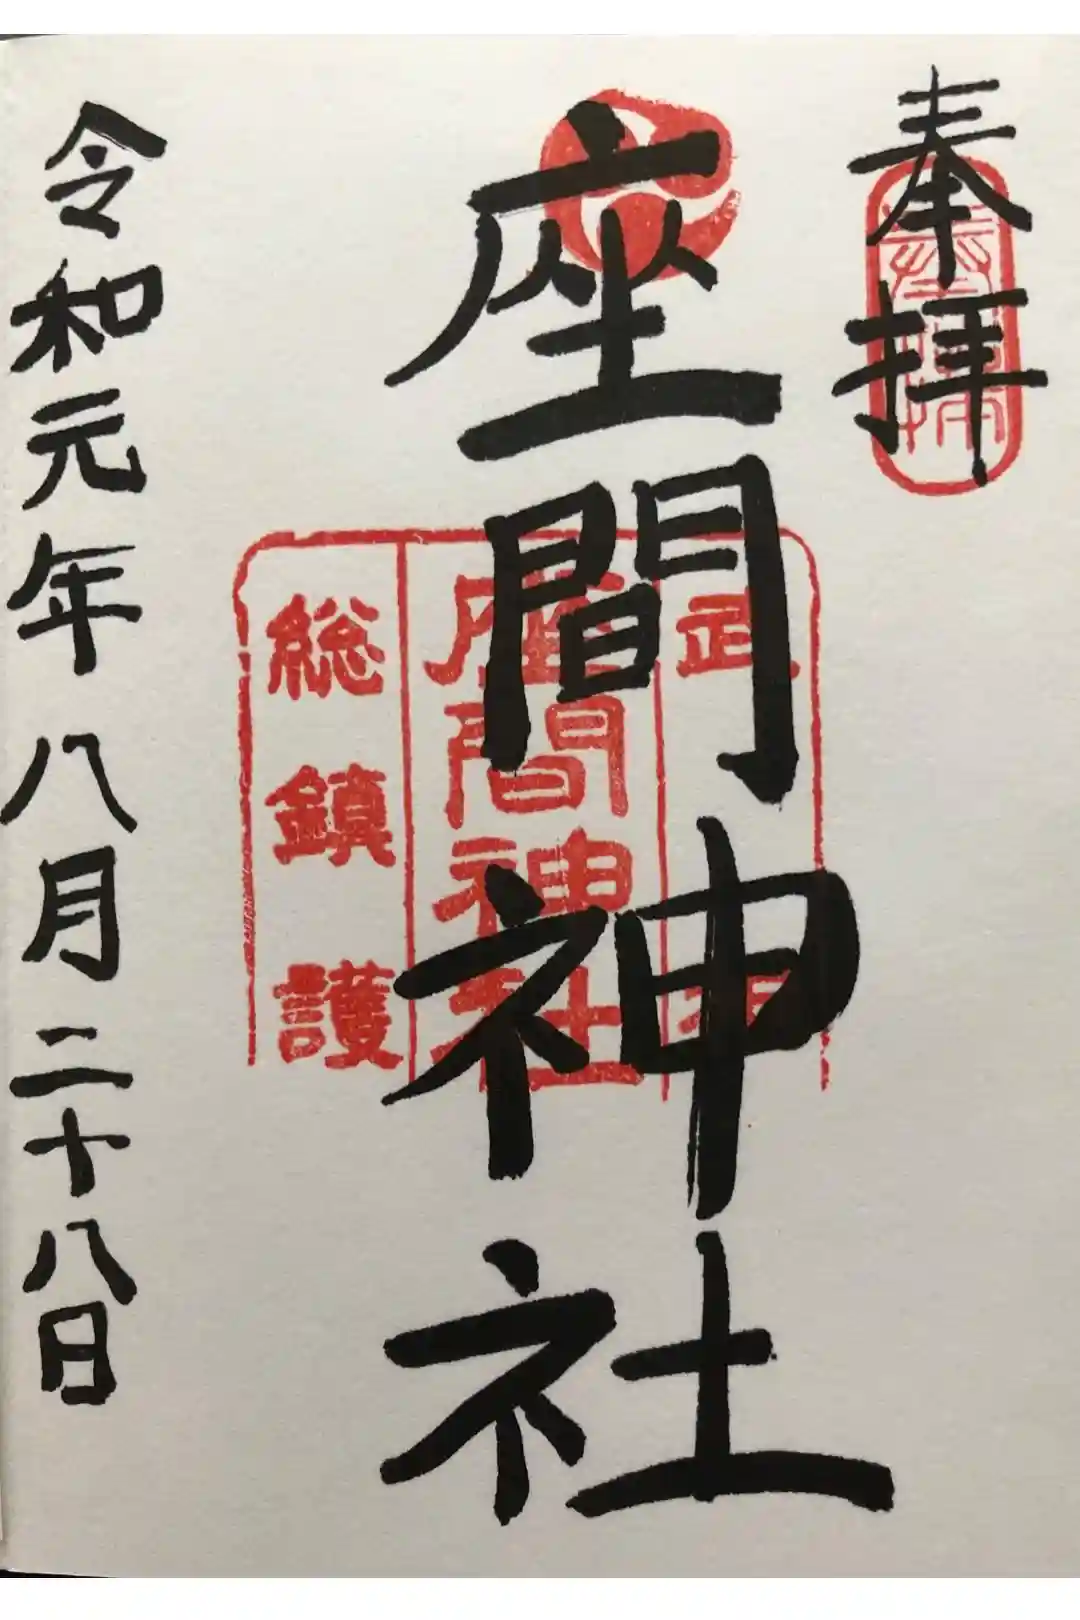 奉拝
奉拝
座間神社
武
座間神社
総鎮護
令和元年八月二十八日